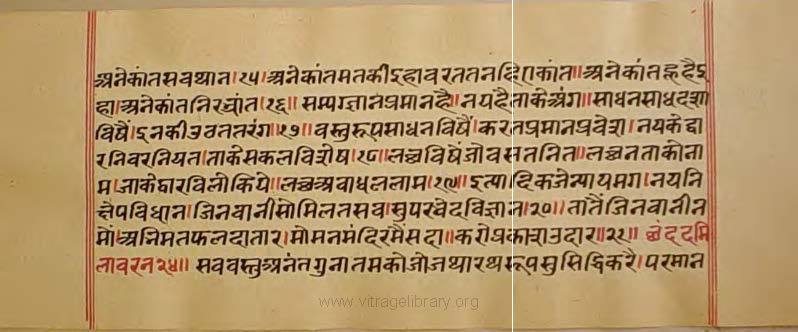 अनेकांतसबथान।१५।अनेकांतमतकीइहावरततनहिएकांत॥अनेकांतहूहैइ
हा।अनेकांतनिरभ्रांत।१६॥सम्यग्ज्ञानप्रमानहै॥नयहैताकेअंग॥साधनसाधदशा
विषैं।इनकीउठततरंग॥१७॥वस्तुरूपसाधनविषैं।करतप्रमानप्रवेश।नयकेद्वा
रनिवरनियत।ताकेसकलविशेष।१८॥लछ्यविषैंजोवसतनित॥लछनताकोना
म।जाकेद्वारविलोकिये॥लछ्यअबाधललाम।१९॥इत्यादिकजेन्यायमग।नयनि
क्षेपविधान।जिनवानीसोमिलतसब।सुपरभेदविज्ञान।२०॥तातैंजिनवानीन
मों।अभिमतफलदातार।मोमनमंदिरमैंसदा॥करोप्रकाशउदार॥२१॥छंददुमि
लावरन२४॥सबवस्तुअनंतगुनातमकोजोजथारथरूपसुसिद्धिकरै।परमान
www.vitragelibrary.org